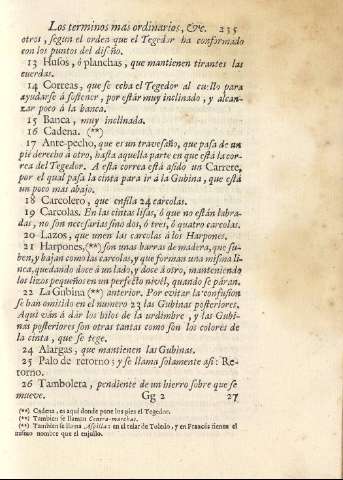 Los terminos mas ordinarios, &c. 235
otros, segun el orden que el Tegedor ha conformado
con los puntos del diseño.
13 Husos, ó planchas, que mantienen tirantes las
cuerdas.
14 Correas, que se echa el Tegedor al cuello para
ayudarse á sostener, por estár muy inclinado, y alcan-
zar poco á la banca.
15 Banca, muy inclinada.
16 Cadena. (**)
17 Ante-pecho, que es un travesaño, que pasa de un
pie derecho á otro, hasta aquella parte en que está la cor-
rea del Tegedor. A esta correa está asido un Carrete,
por el qual pasa la cinta para ir á la Gubina, que está
un poco mas abajo.
18 Carcolero, que enfila 24 carcolas.
19 Carcolas. En las cintas lisas, ó que no están labra-
das, no son necesarias sino dos, ó tres, ó quatro carcolas.
20 Lazos, que unen las carcolas á los Harpones.
21 Harpones, (**) son unas barras de madera, que su-
ben, y bajan como las carcolas, y que forman una misma li-
nea, quedando doce á un lado, y doce á otro, manteniendo
los lizos pequeños en un perfecto nivél, quando se páran.
22 La Gubina (**) anterior. Por evitar la confusion
se han omitido en el numero 23 las Gubinas posteriores.
Aqui ván á dár los hilos de la urdimbre, y las Gubi-
nas posteriores son otras tantas como son los colores de
la cinta, que se tege.
24 Alargas, que mantienen las Gubinas.
25 Palo de retorno; y se llama solamente asi: Re-
torno.
26 Tambolera, pendiente de un hierro sobre que se
mueve. Gg 2 27
(**) Cadena, es aqui donde pone los pies el Tegedor.
(**) Tambien se llaman Contra-marchas.
(**) Tambien se llama Aspilla: en el telar de Toledo, y en Francés tienen el
mismo nombre que el enjullo.